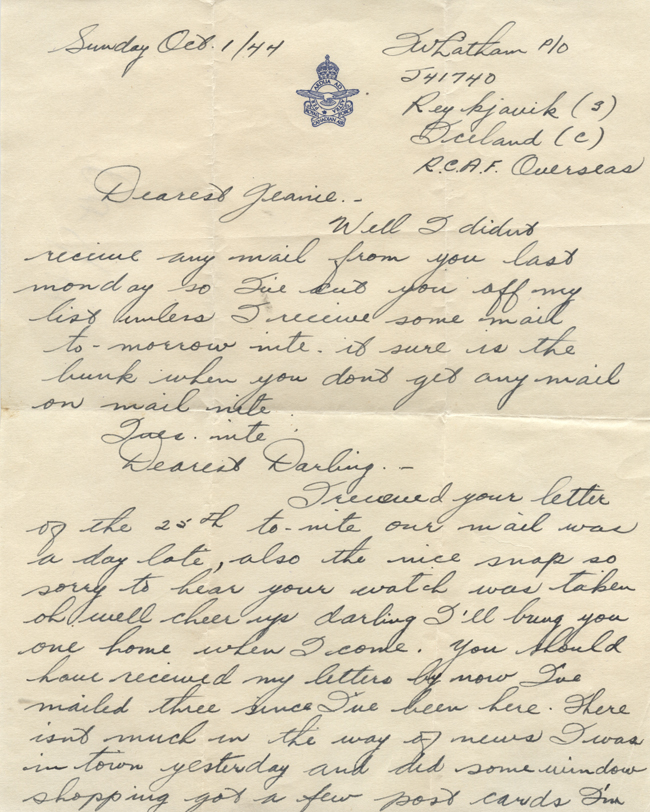 Sunday Oct. 1/44
JW Latham P/O
J41740
Reykjavik (3)
Iceland (C)
R.C.A.F. Overseas
Dearest Jeanie. -
Well I didnt
receive any mail from you last
monday so I've cut you off my
list unless I receive some mail
to-morrow nite. it sure is the
bunk when you dont get any mail
on mail nite.
Tues. nite.
Dearest Darling. -
I received your letter
of the 25th to-nite our mail was
a day late, also the nice snap so
sorry to hear your watch was taken
oh well cheer up darling I'll bring you
one home when I come. You should
have received my letters by now I've
mailed three since I've been here. There
isnt much in the way of news I was
in town yesterday and did some window
shopping got a few post cards I'm